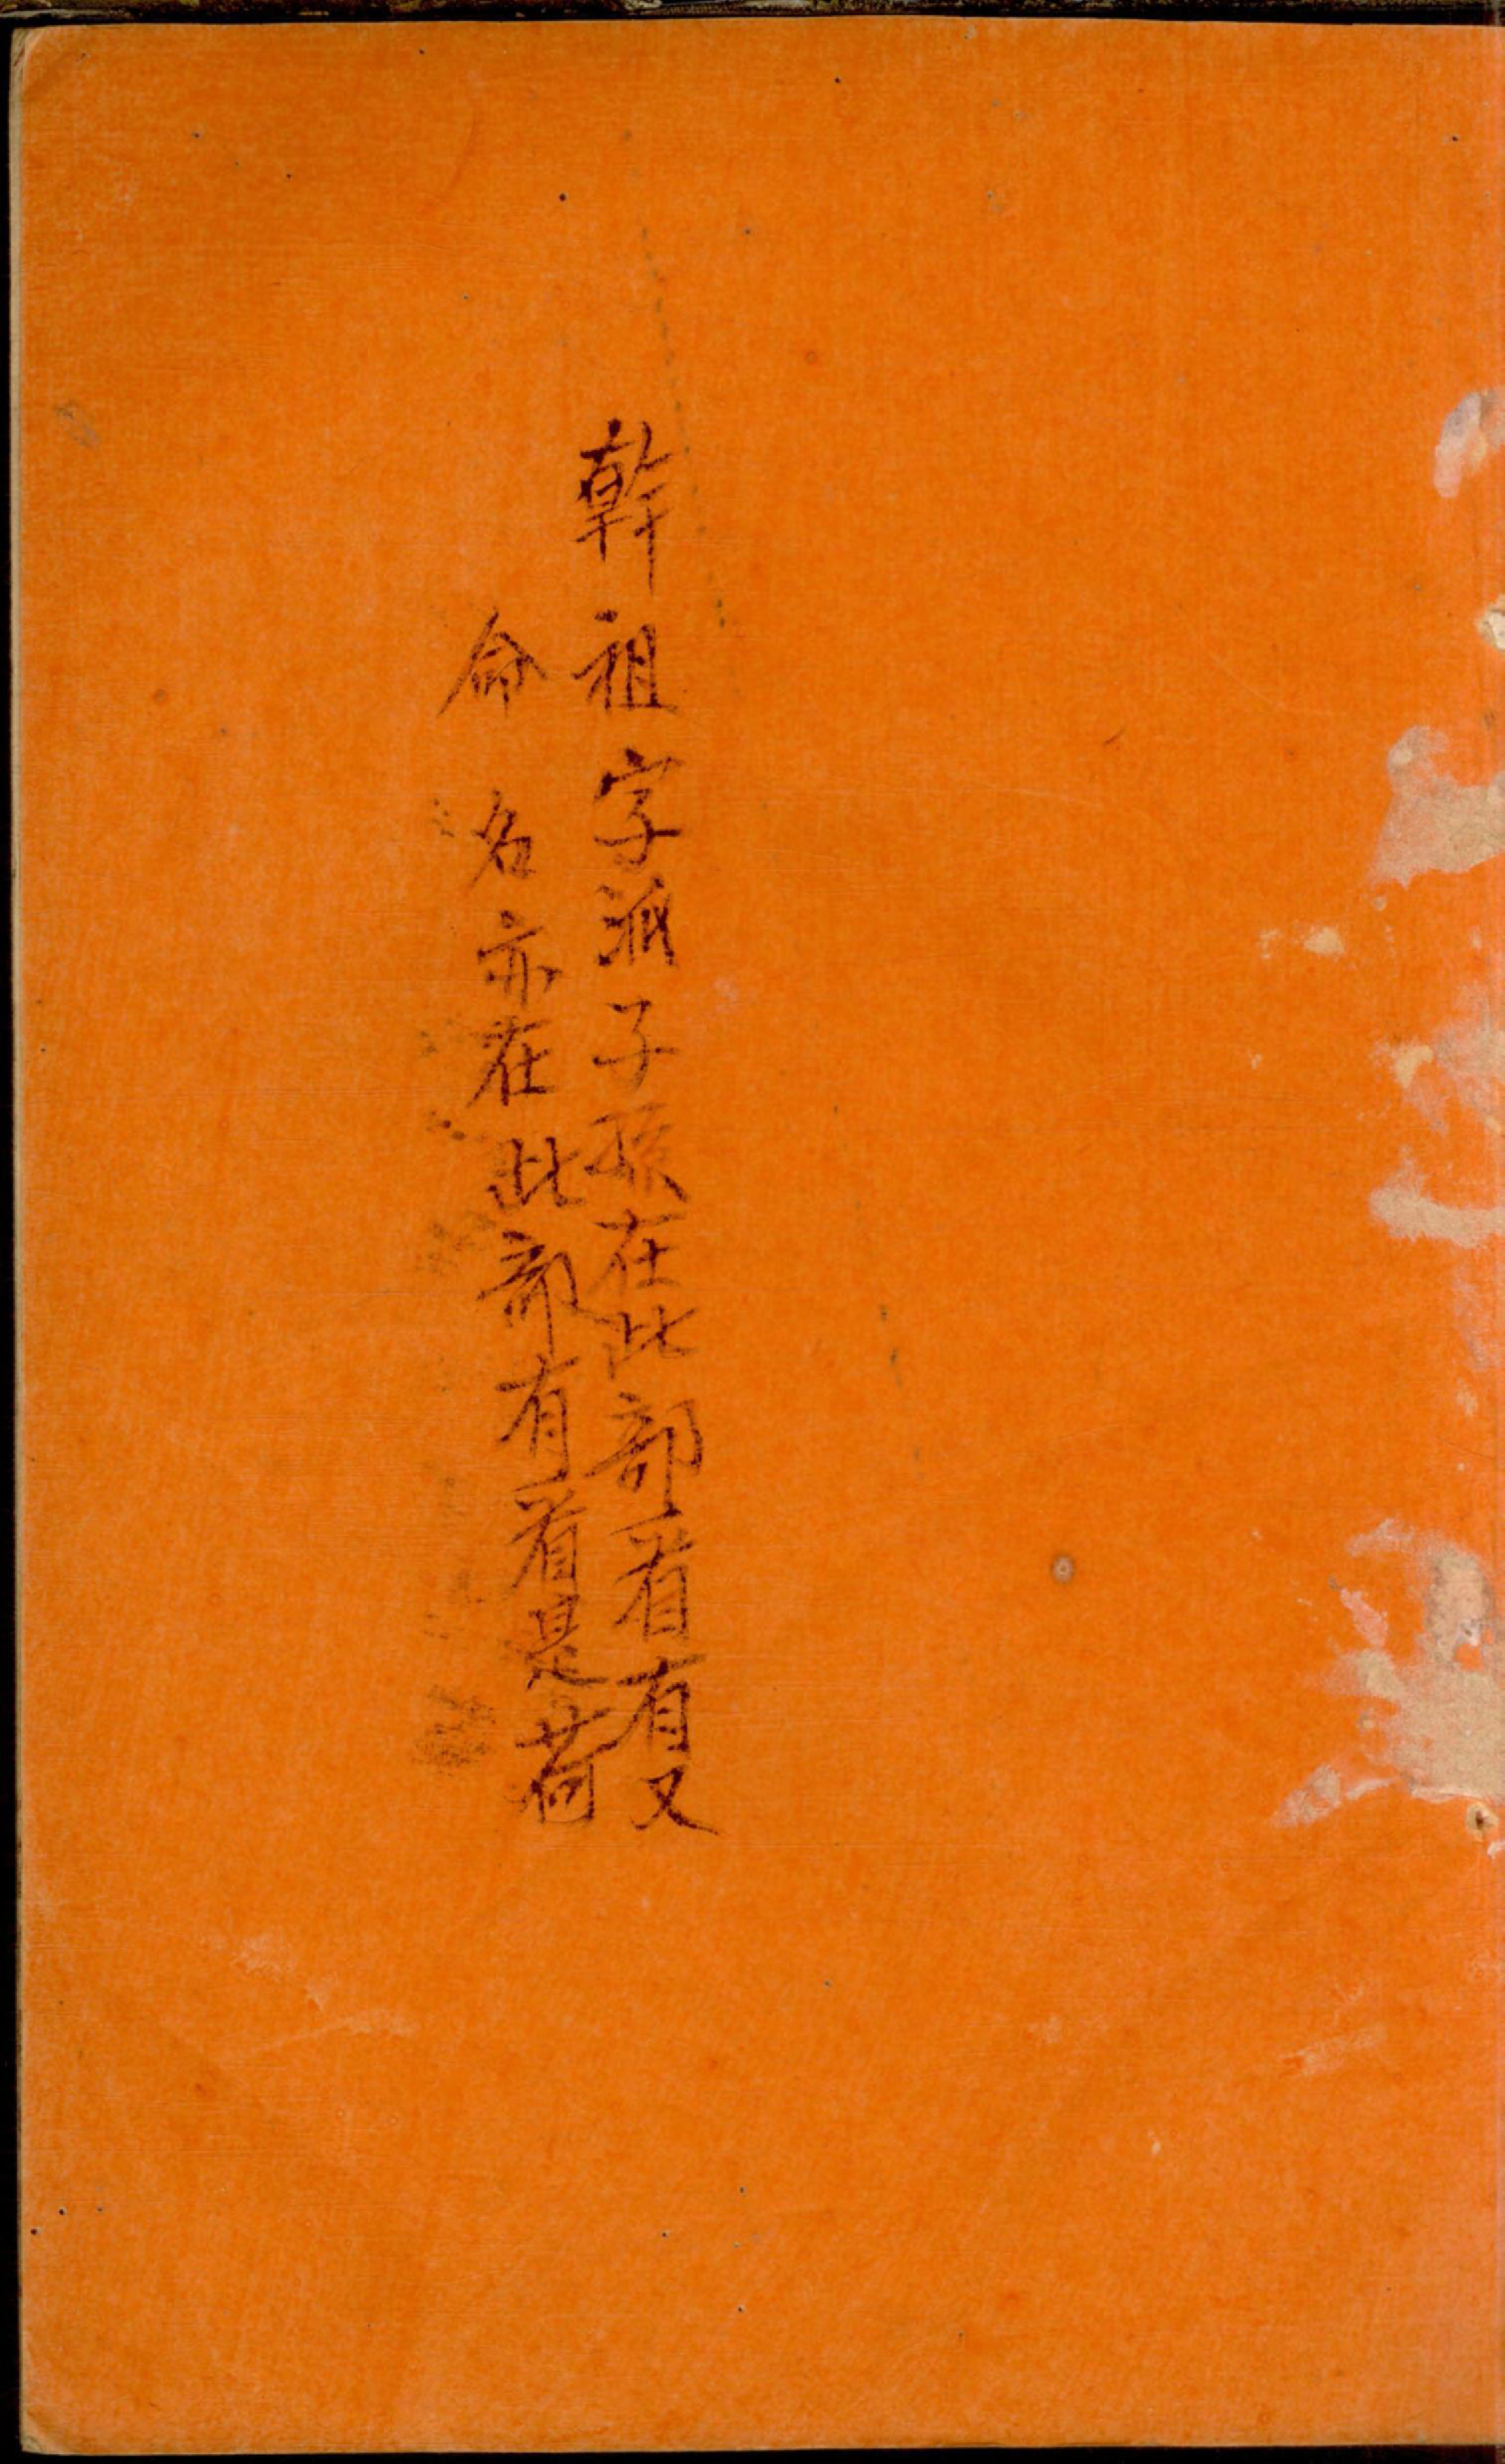 幹祖字派子孫在此部看有又
命名亦在此部有看是荷